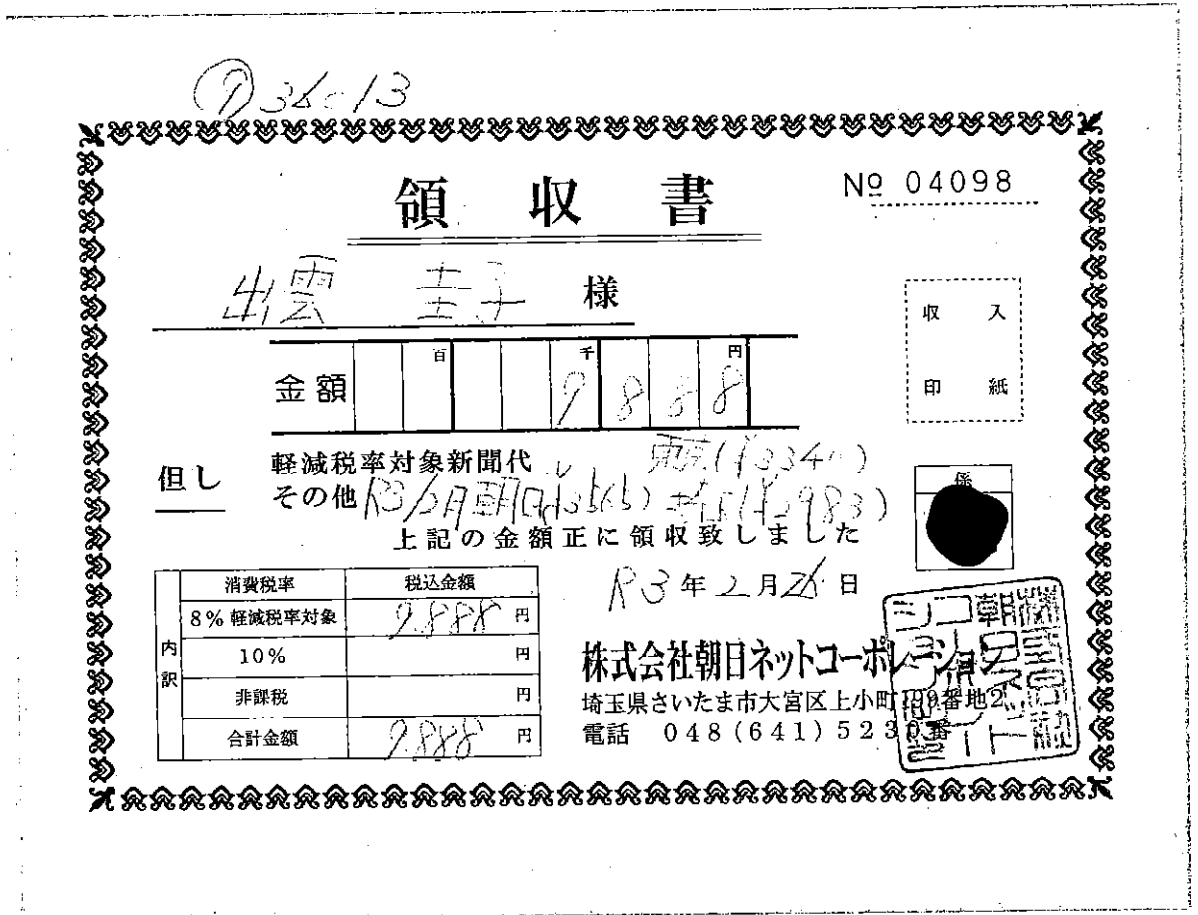 領収書
№ 04098
出雲 圭子 様
収入
印紙
金額 百 千 円
9 8 8 8
但し
軽減税率対象新聞代 東京(¥3340)
その他 R3/2月朝日(¥3565) (¥2983)
上記の金額正に領収致しました
係
R3年2月26日
内訳
消費税率 税込金額
8% 軽減税率対象 9.888 円
10% 円
非課税 円
合計金額 9.888 円
株式会社朝日ネットコーポレーション
埼玉県さいたま市大宮区上小町199番地2
電話 048(641)5230番